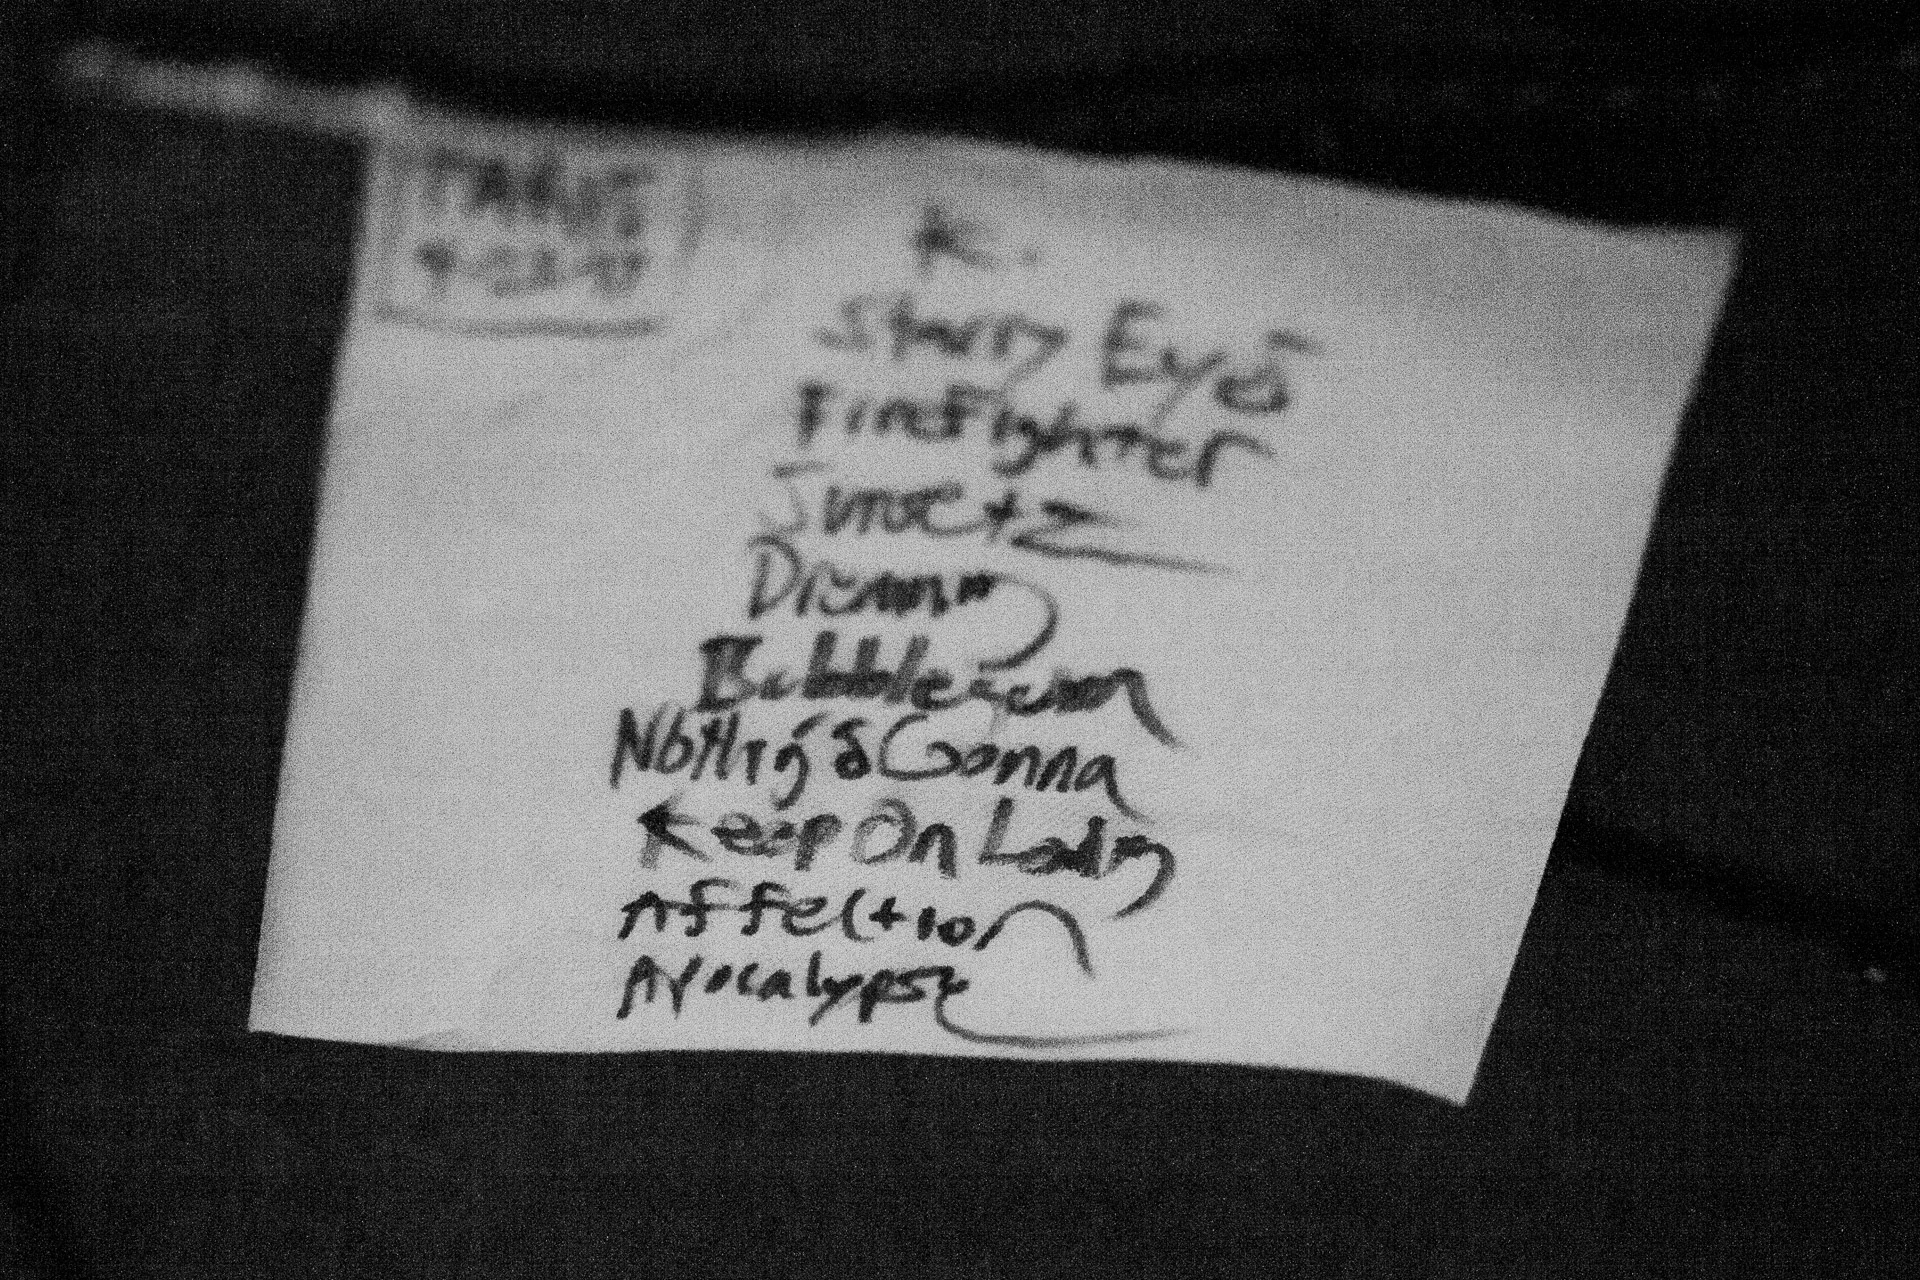 PARIS
K.
Starry Eyes
Firefighter
Sunsetz
Dreaming
Bubblegum
Nothing's Gonna
Keep On Loving
Affection
Apocalypse